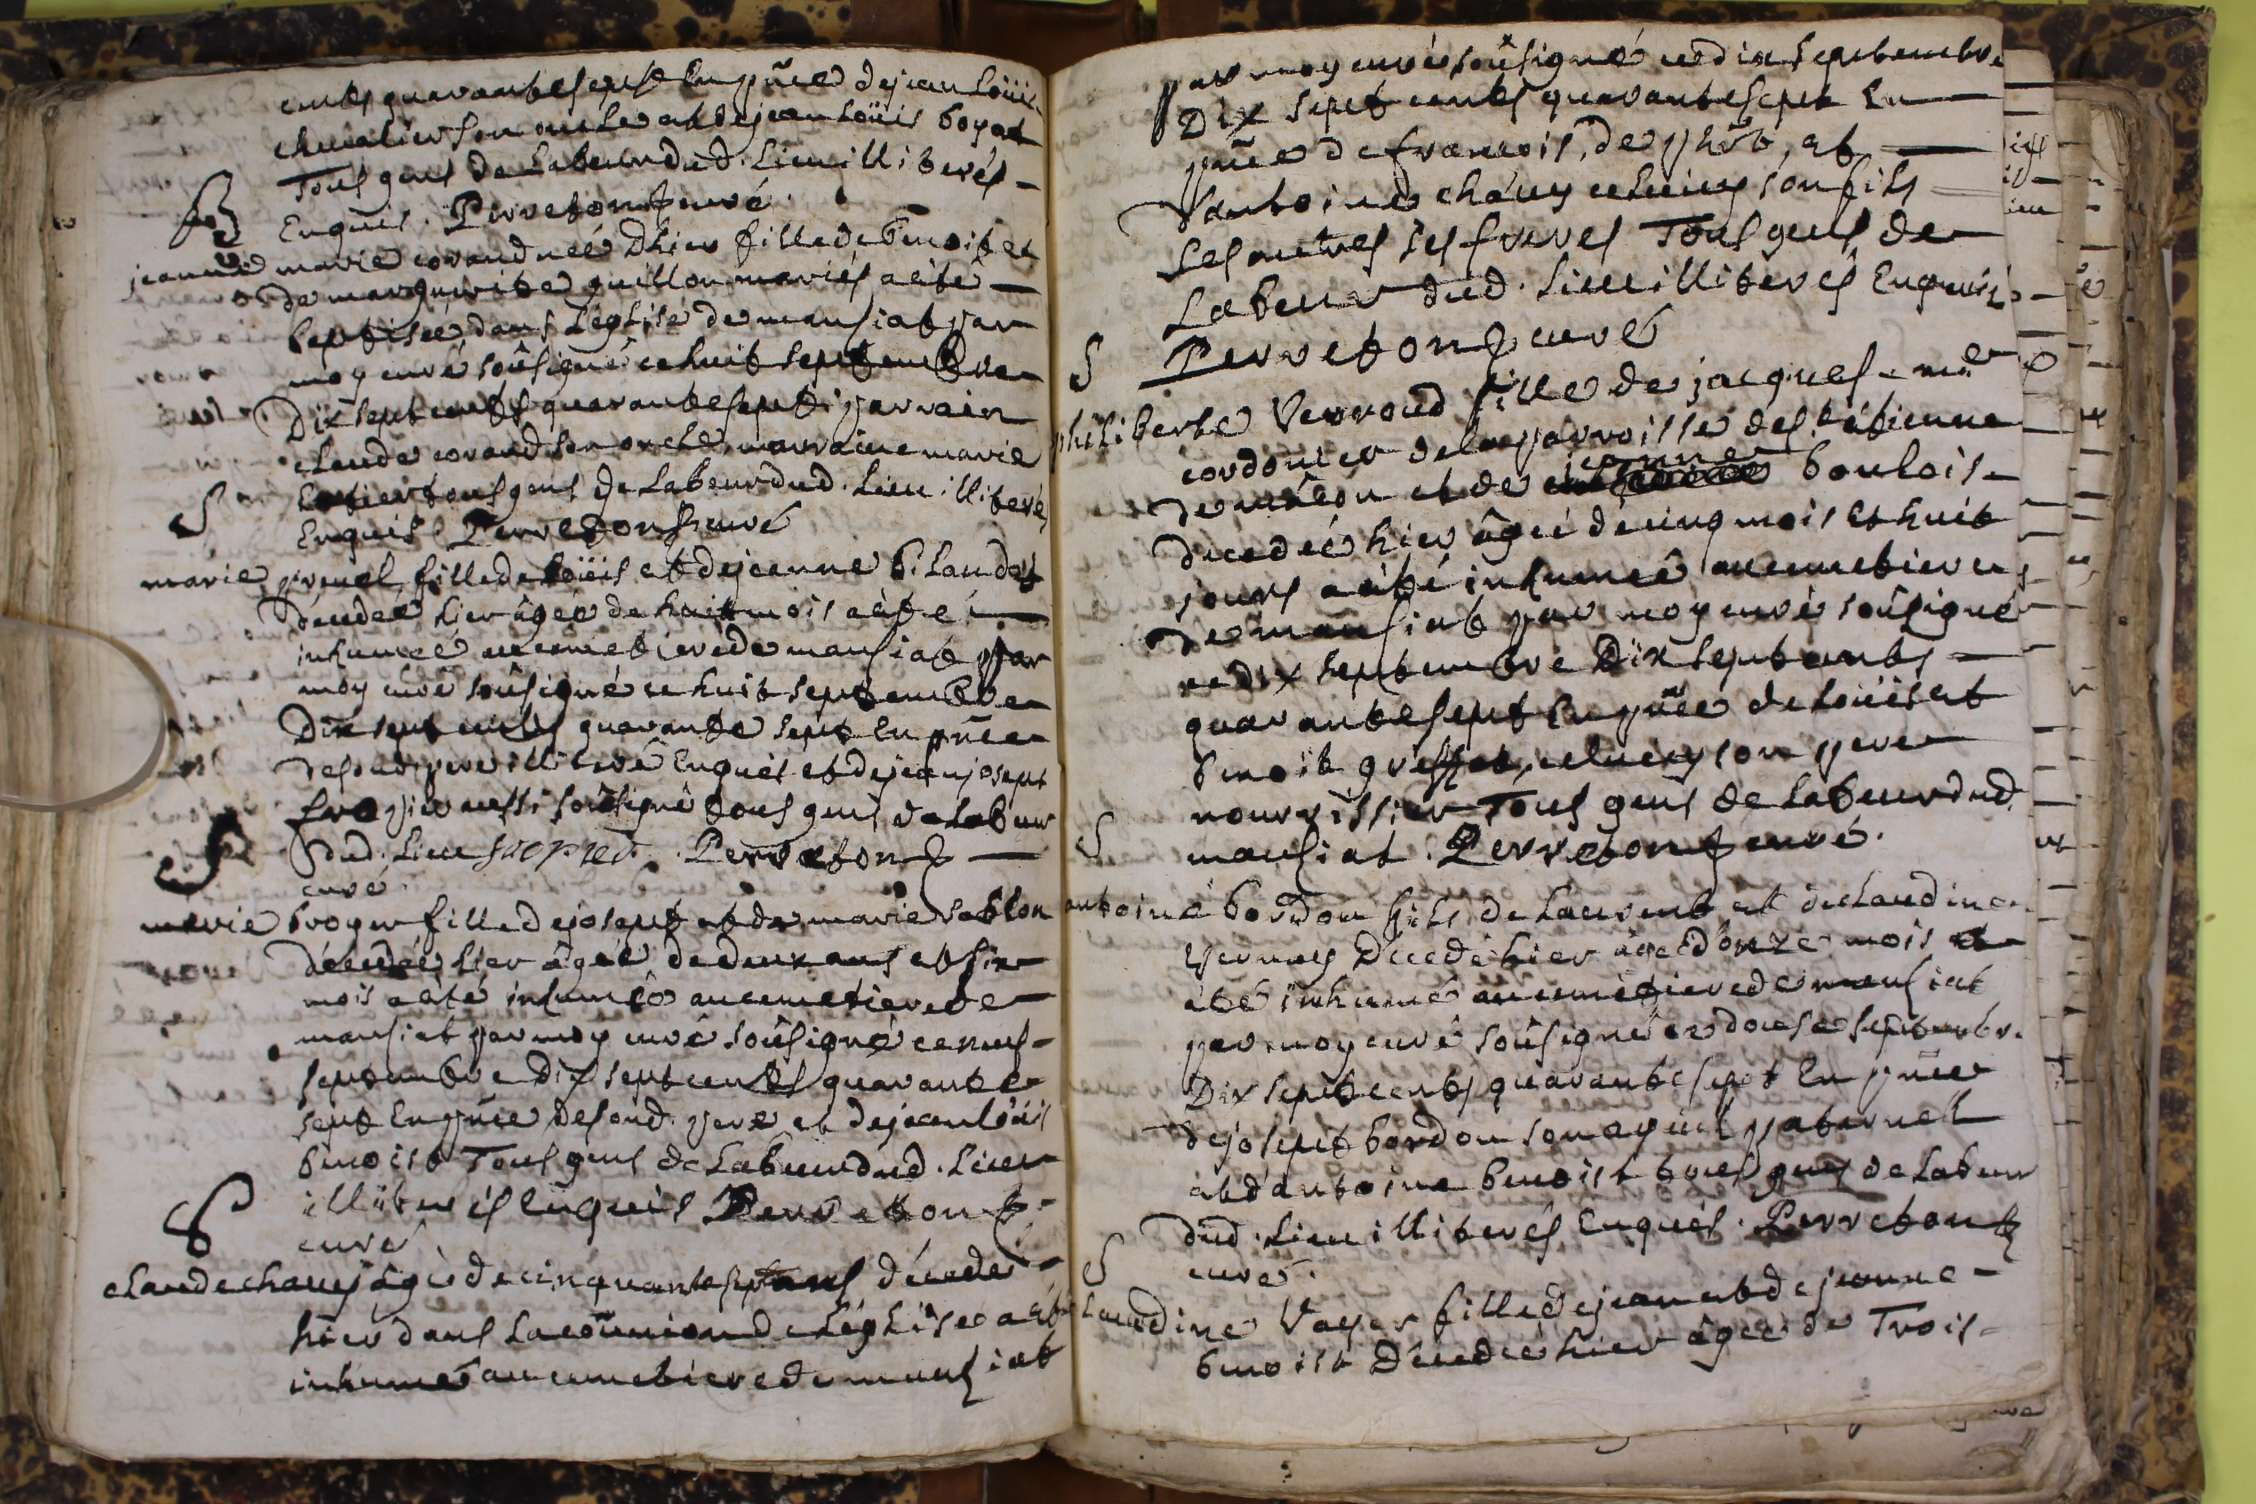 cents quarante sept En pñce de jean Loüis
chevalier son oncle et de jean Loüis boyat
Tous gens de Labeur dud. Lieu illiterés
Enquis. Perreton curé
B
jeanne marie corand neé D'hier fille de benoist et
de marguerite guillon mariés a été
baptisée dans L'eglise de mansiat par
moy curé soûsigné ce huit septembre
Dix sept cents quarante sept parrain
claude corand son oncle marraine marie
tous gens de Labeur dud. Lieu illiterés
Enquis Perreton curé
S
marie prevel fille de Loüis et de jeanne bilandet
décedeé hier âgeé de huit mois a été
inhumeé au cimetiere de mansiat par
moy curé soûsigné ce huit septembre
Dix sept cents quarante sept En pñce
de soud. pere illiteré Enquis et de jean josept
aussi soûsigné tous gens de Labeur
dud. Lieu Perreton
curé.
S
marie broyer fille de josept et de marie sablon
décedeé hier âgeé de deux ans et six
mois a été inhumeé au cimetiere de
mansiat par moy curé soûsigné ce neuf
septembre dix sept cents quarante
sept En pñce de soud. pere et de jean Loüis
benoist Tous gens de Labeur dud. Lieu
illiterés Enquis Perreton
curé
S
claude chavy âgé de cinquante sept ans décedé
hier dans La coũnion de L'eglise a été
inhumé au cimetiere de mansiat
par moy curé soûsigné ce dix septembre
Dix sept cents quarante sept En
pñce de francois, de phrt, et
d'antoine chavy celuicy son fils
Les autres ses freres Tous gens de
Labeur dud. Lieu illiterés Enquis
Perreton curé
S
philiberte Verroud fille de jacques me
cordonier de la parroisse de st étienne
de mâcon et de jeanne boulois
decedeé hier âgeé de cinq mois et huit
jours a été inhumeé au cimetiere
de mansiat par moy curé soûsigné
ce dix septembre Dix sept cents
quarante sept En pñce de Loüis et
benoist greffet, celuicy son pere
nourrissier Tous gens de Labeur dud.
mansiat. Perreton curé.
S
antoine bordon fils de Laurent et de claudine
pernus Décedé hier âgé d'onze mois a
été inhumé au cimetiere de mansiat
par moy curé soûsigné ce douse septembre
Dix sept cents quarante sept En pñce
de josept bordon son ayeul paternel
et d'antoine benoist tous gens de Labeur
dud. Lieu illiterés Enquis. Perreton
curé.
S
claudine Vayer fille de jean et de jeanne
benoist Décedeé hier âgeé de Trois